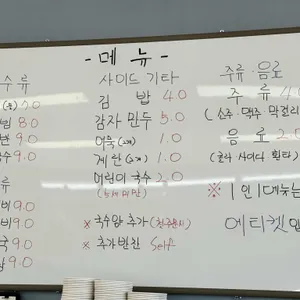 - 메 뉴 -
수 류
5.0
8.0
반 9.0
수 9.0
류
비 9.0
비 9.0
국 9.0
9.0
사이드 기타
김 밥 4.0
감자 만두 5.0
어묵 1.0
계란 1.0
어린이 국수 2.0
※ 국수양 추가
※ 추가반찬 Self
주류 . 음료
주 류 4.0
( 소주 . 맥주 막걸리
음 료 2.0
( 콜라 사이다 환타 )
※ 1인 1메뉴는
에티켓 입